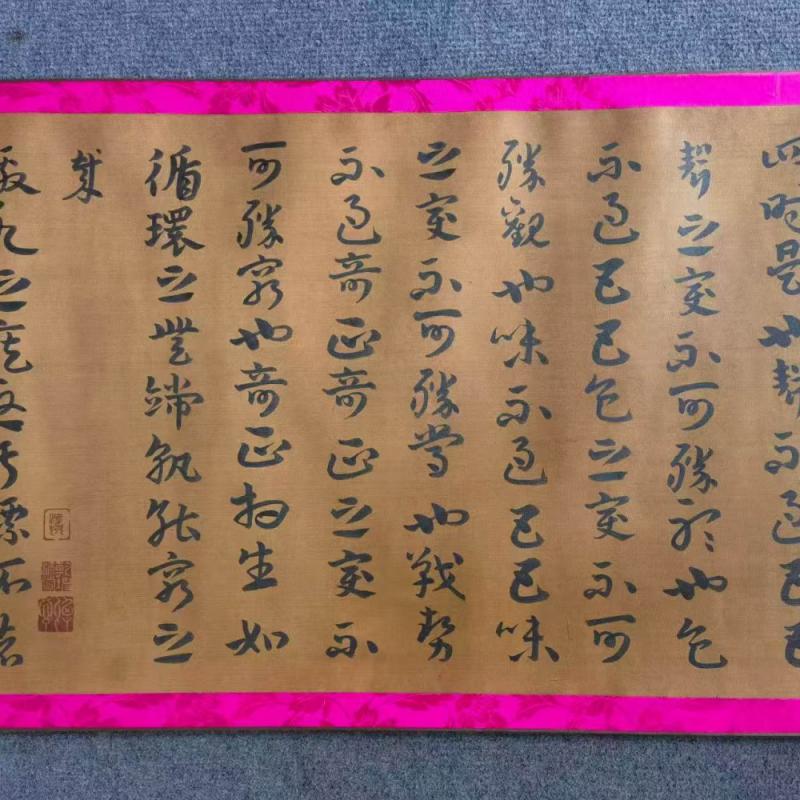 四時是也聲不過五五
聲之變不可勝聽也色
不過五五色之變不可
勝觀也味不過五五味
之變不可勝嘗也戰勢
不過奇正奇正之變不
可勝窮也奇正相生如
循環之無端孰能窮之
哉
激水之疾至于漂石者